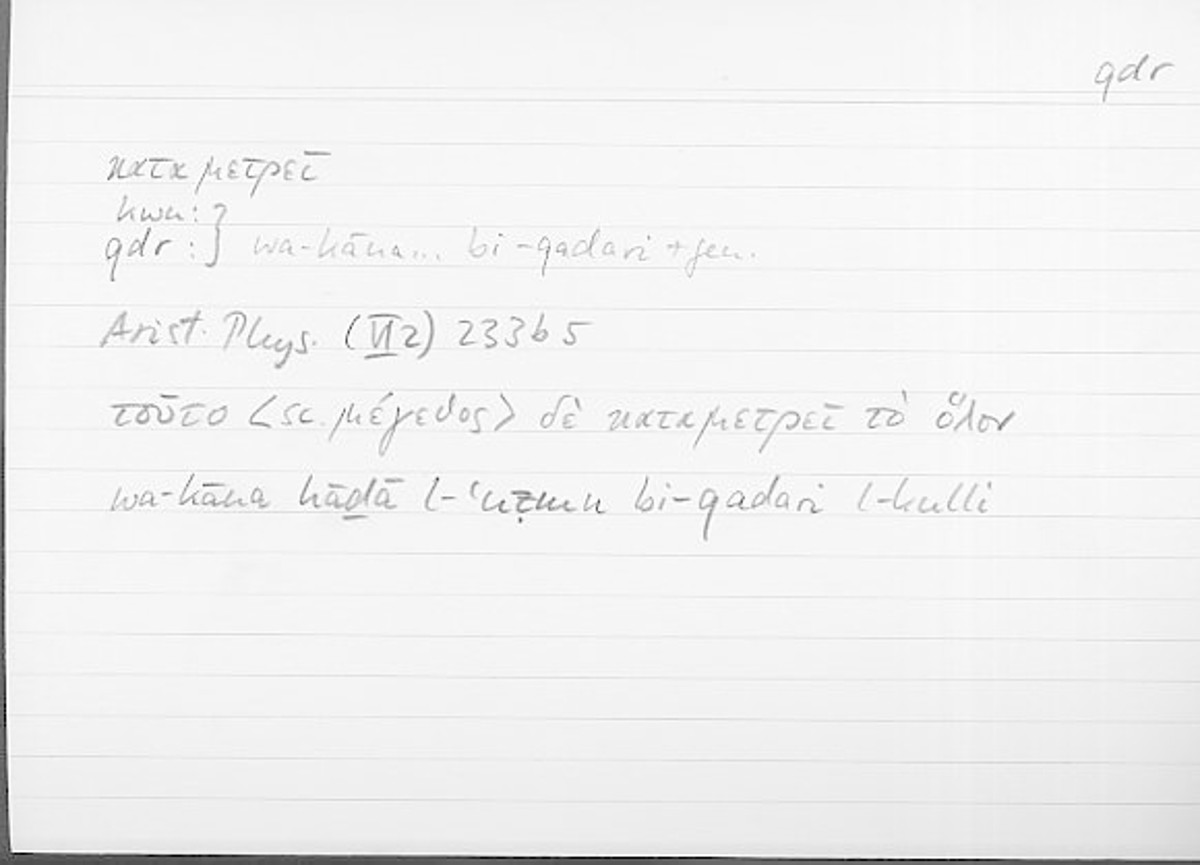 qdr
καταμετρεῖ
kwn: }
qdr : } wa-kāna... bi-qadari + gen.
Arist. Phys. (VI 2) 233b5
τοῦτο <sc. μέγεθος> δὲ καταμετρεῖ τὸ ὅλον
wa-kāna hāḏā l-ʿuẓmu bi-qadari l-kulli